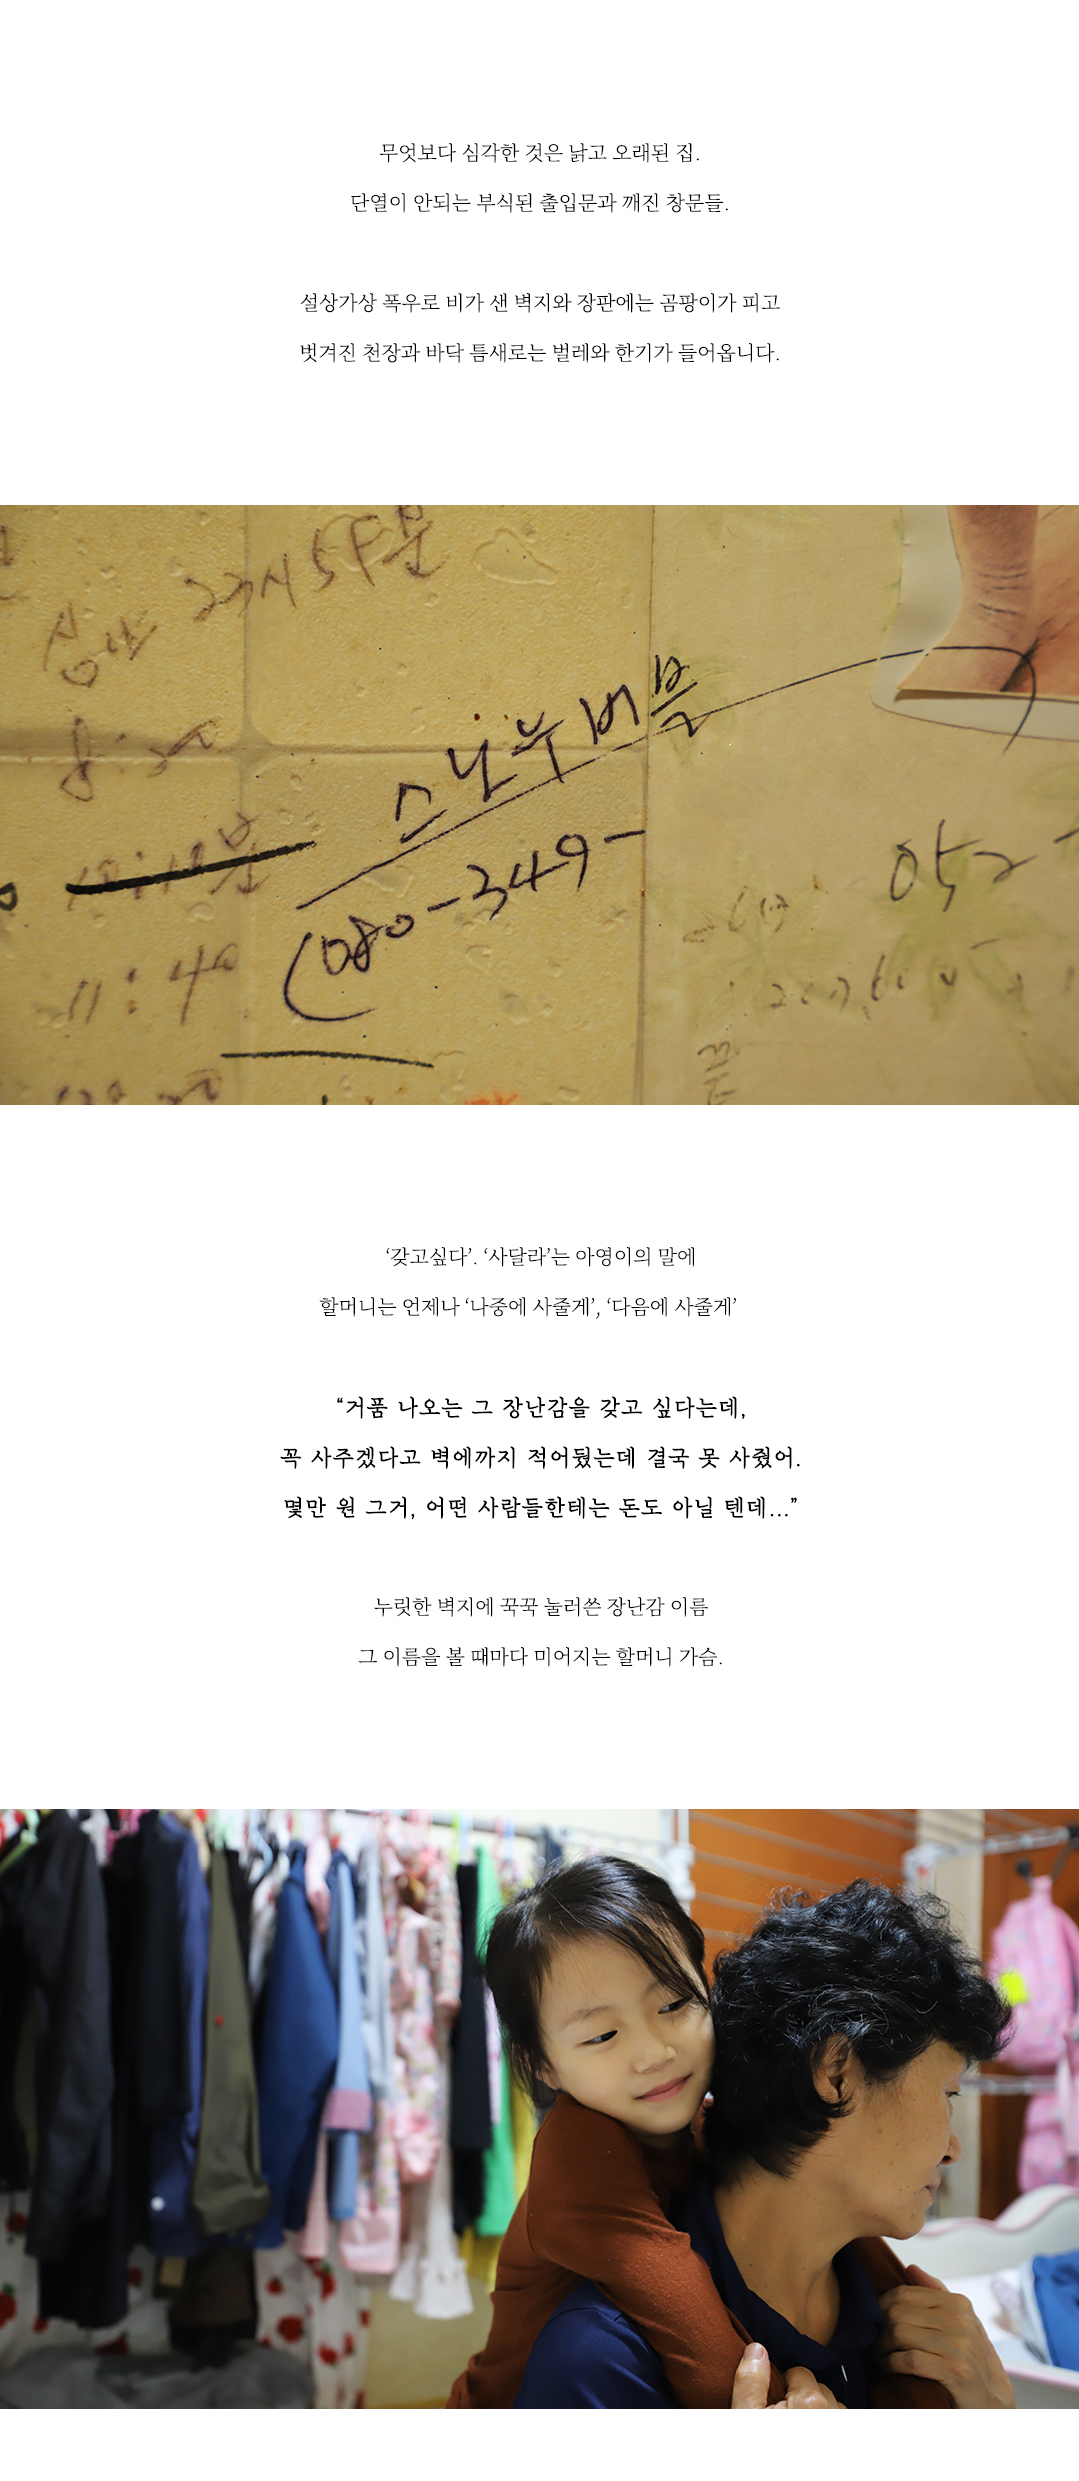 무엇보다 심각한 것은 낡고 오래된 집.
단열이 안되는 부식된 출입문과 깨진 창문들.
설상가상 폭우로 비가 샌 벽지와 장판에는 곰팡이가 피고
벗겨진 천장과 바닥 틈새로는 벌레와 한기가 들어옵니다.
23시 54분
스노우버블
(080-349-
11:40
끝
‘갖고싶다’. ‘사달라’는 아영이의 말에
할머니는 언제나 ‘나중에 사줄게’, ‘다음에 사줄게’
“거품 나오는 그 장난감을 갖고 싶다는데,
꼭 사주겠다고 벽에까지 적어뒀는데 결국 못 사줬어.
몇만 원 그거, 어떤 사람들한테는 돈도 아닐 텐데...”
누릿한 벽지에 꾹꾹 눌러쓴 장난감 이름
그 이름을 볼 때마다 미어지는 할머니 가슴.